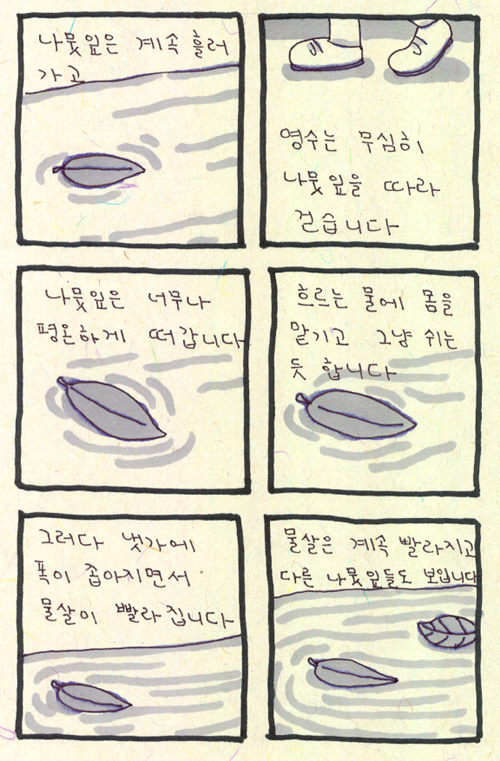 나뭇잎은 계속 흘러
가고
영수는 무심히
나뭇잎을 따라
걷습니다
나뭇잎은 너무나
평온하게 떠갑니다
흐르는 물에 몸을
맡기고 그냥 쉬는
듯 합니다
그러다 냇가에
폭이 좁아지면서
물살이 빨라집니다
물살은 계속 빨라지고
다른 나뭇잎들도 보입니다